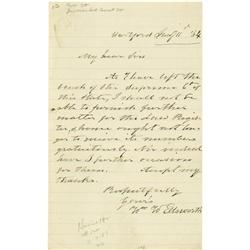 Hartford July 11 '64
My dear Sirs
As I have left the
bench of the Supreme Ct of
this State, I shall not be
able to furnish further
matter for the Law Regis-
ter, & hence ought not lon-
ger to receive its numbers
gratuitously. Nor indeed
have I further occasion
for them. Accept my
thanks.
Respectfully
Yours
Wm W Ellsworth